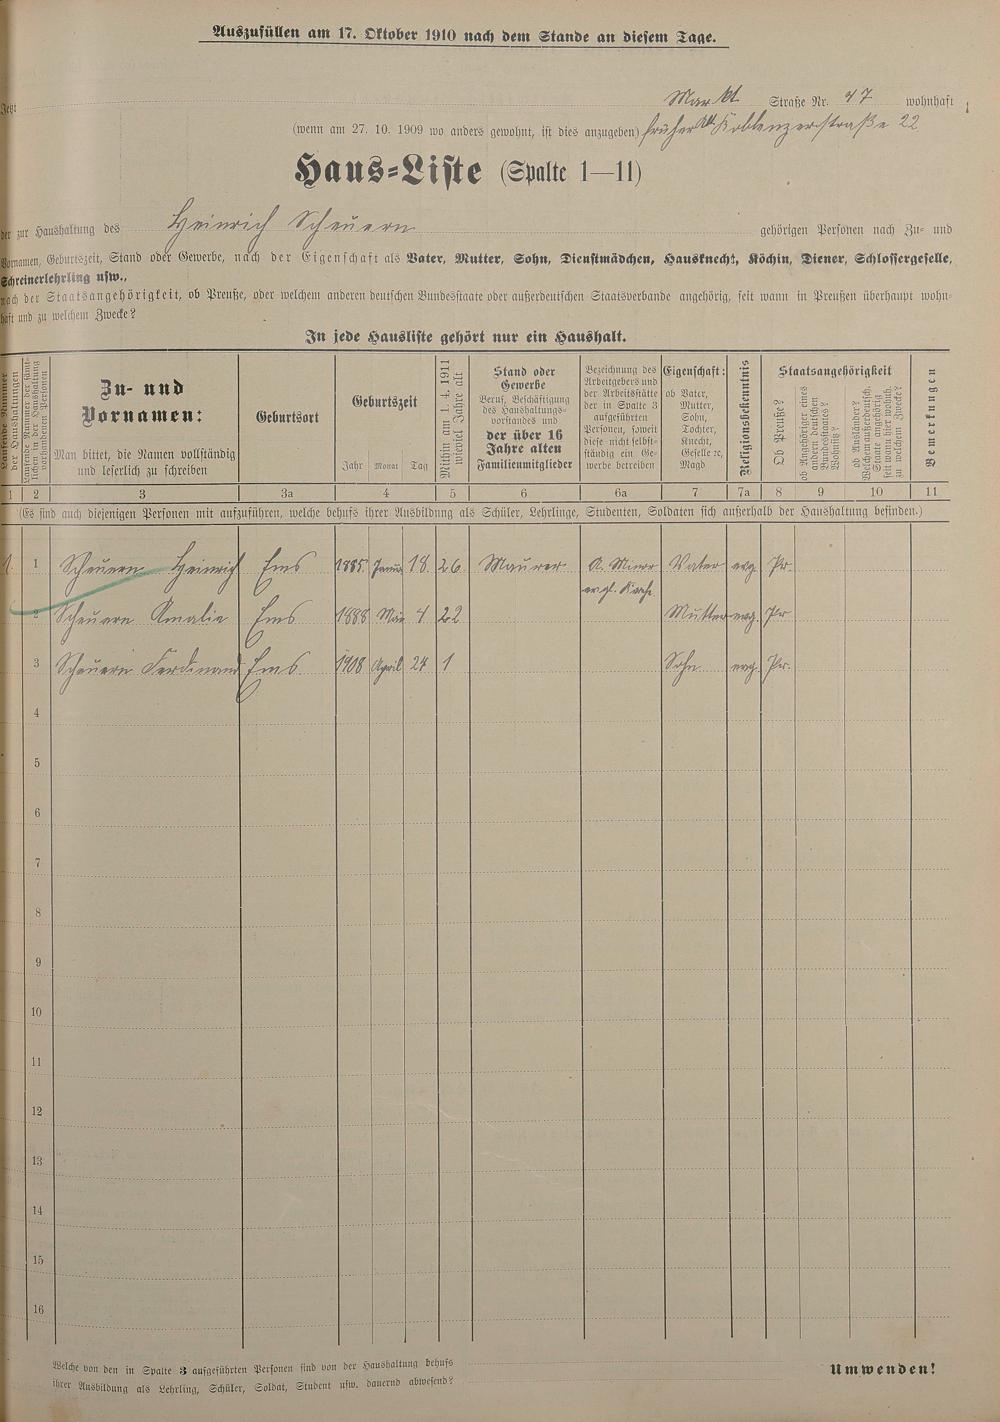 Auszufüllen am 17. Oktober 1910 nach dem Stande an diesem Tage.
Jetzt Markt Straße Nr. 47 wohnhaft
(wenn am 27. 10. 1909 wo anders gewohnt, ist dies anzugeben) früher Koblenzerstraße 22
Haus-Liste (Spalte 1—11)
der zur Haushaltung des Heinrich Scheuern gehörigen Personen nach Zu- und
Vornamen, Geburtszeit, Stand oder Gewerbe, nach der Eigenschaft als Vater, Mutter, Sohn, Dienstmädchen, Hausknecht, Köchin, Diener, Schlossergeselle,
Schreinerlehrling usw.,
nach der Staatsangehörigkeit, ob Preuße, oder welchem anderen deutschen Bundesstaate oder außerdeutschen Staatsverbande angehörig, seit wann in Preußen überhaupt wohn-
haft und zu welchem Zwecke?
In jede Hausliste gehört nur ein Haushalt.
Laufende Nummer der Haushaltungen
Laufende Nummer der sämt-
lichen in der Haushaltung
vorhandenen Personen
Zu- und
Vornamen:
Man bittet, die Namen vollständig
und leserlich zu schreiben
Geburtsort
Geburtszeit
Jahr Monat Tag
Mithin am 1. 4. 1911
wieviel Jahre alt
Stand oder
Gewerbe
Beruf, Beschäftigung
des Haushaltungs-
vorstandes und
der über 16
Jahre alten
Familienmitglieder
Bezeichnung des
Arbeitgebers und
der Arbeitsstätte
der in Spalte 3
aufgeführten
Personen, soweit
diese nicht selbst-
ständig ein Ge-
werbe betreiben
Eigenschaft:
ob Vater,
Mutter,
Sohn,
Tochter,
Knecht,
Geselle ec,
Magd
Religionsbekenntnis
Staatsangehörigkeit
Ob Preuße?
ob Angehöriger eines
andern deutschen
Bundesstaates?
Wohnsitz?
ob Ausländer?
Welchem außerdeutsch.
Staate angehörig
seit wann hier wohnh.
zu welchem Zwecke?
Bemerkungen
1 2 3 3a 4 5 6 6a 7 7a 8 9 10 11
(Es sind auch diejenigen Personen mit aufzuführen, welche behufs ihrer Ausbildung als Schüler, Lehrlinge, Studenten, Soldaten sich außerhalb der Haushaltung befinden.)
1. 1 Scheuern Heinrich Ems 1885 Januar 18. 26 Maurer A. Minor Vater evg. Pr.
evgl. Kirche
2 Scheuern Amalie Ems 1888 Mai 4 22 Mutter evg. Pr
3 Scheuern Ferdinand Ems 1908 April 24 1 Sohn evg. Pr.
4
5
6
7
8
9
10
11
12
13
14
15
16
Welche von den in Spalte 3 aufgeführten Personen sind von der Haushaltung behufs
ihrer Ausbildung als Lehrling, Schüler, Soldat, Student usw. dauernd abwesend?
Umwenden!